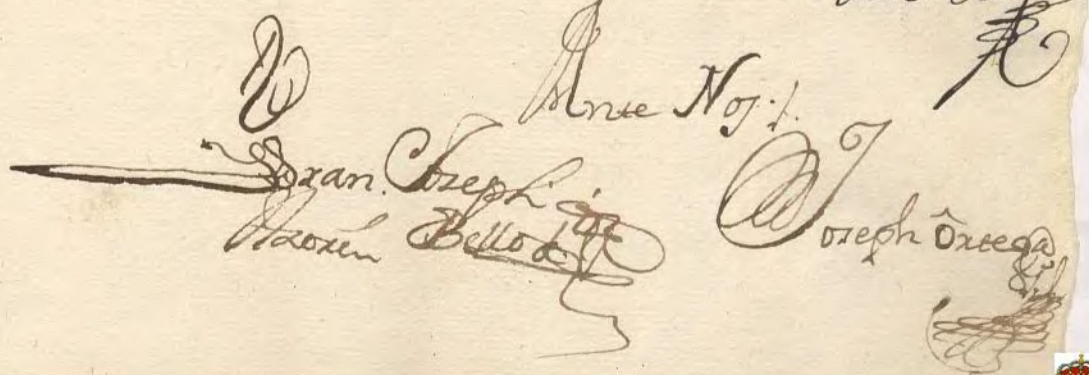 Ante Nos.
Fran. Joseph
Azorin Bello
Joseph Ortega